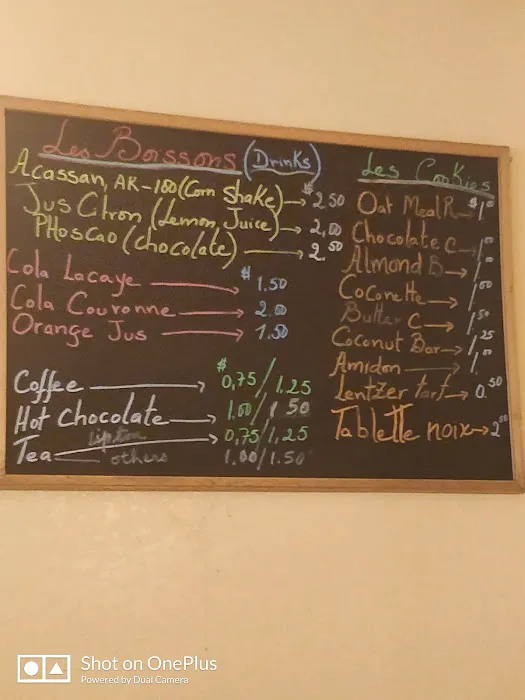 Les Boissons (Drinks)
Acassan, AK-100 (Corn Shake) → $ 2.50
Jus Citron (Lemon Juice) → 2,00
PHoscao (chocolate) → 2 50
Cola Lacaye → $ 1.50
Cola Couronne → 2.00
Orange Jus → 1.50
Coffee → $ 0,75 / 1.25
Hot Chocolate → 1.00 / 1 50
Tea lipton → 0,75 / 1,25
others 1.00 / 1.50
Les Cookies
Oat Meal R → $ 1 00
Chocolate C → 1 00
Almond B → 1 00
Coconette → 1 00
Butter C → 1 50
Coconut Bar → 1 25
Amidon → 1 00
Lentzer tart → 0.50
Tablette noix → 2 00
Shot on OnePlus
Powered by Dual Camera